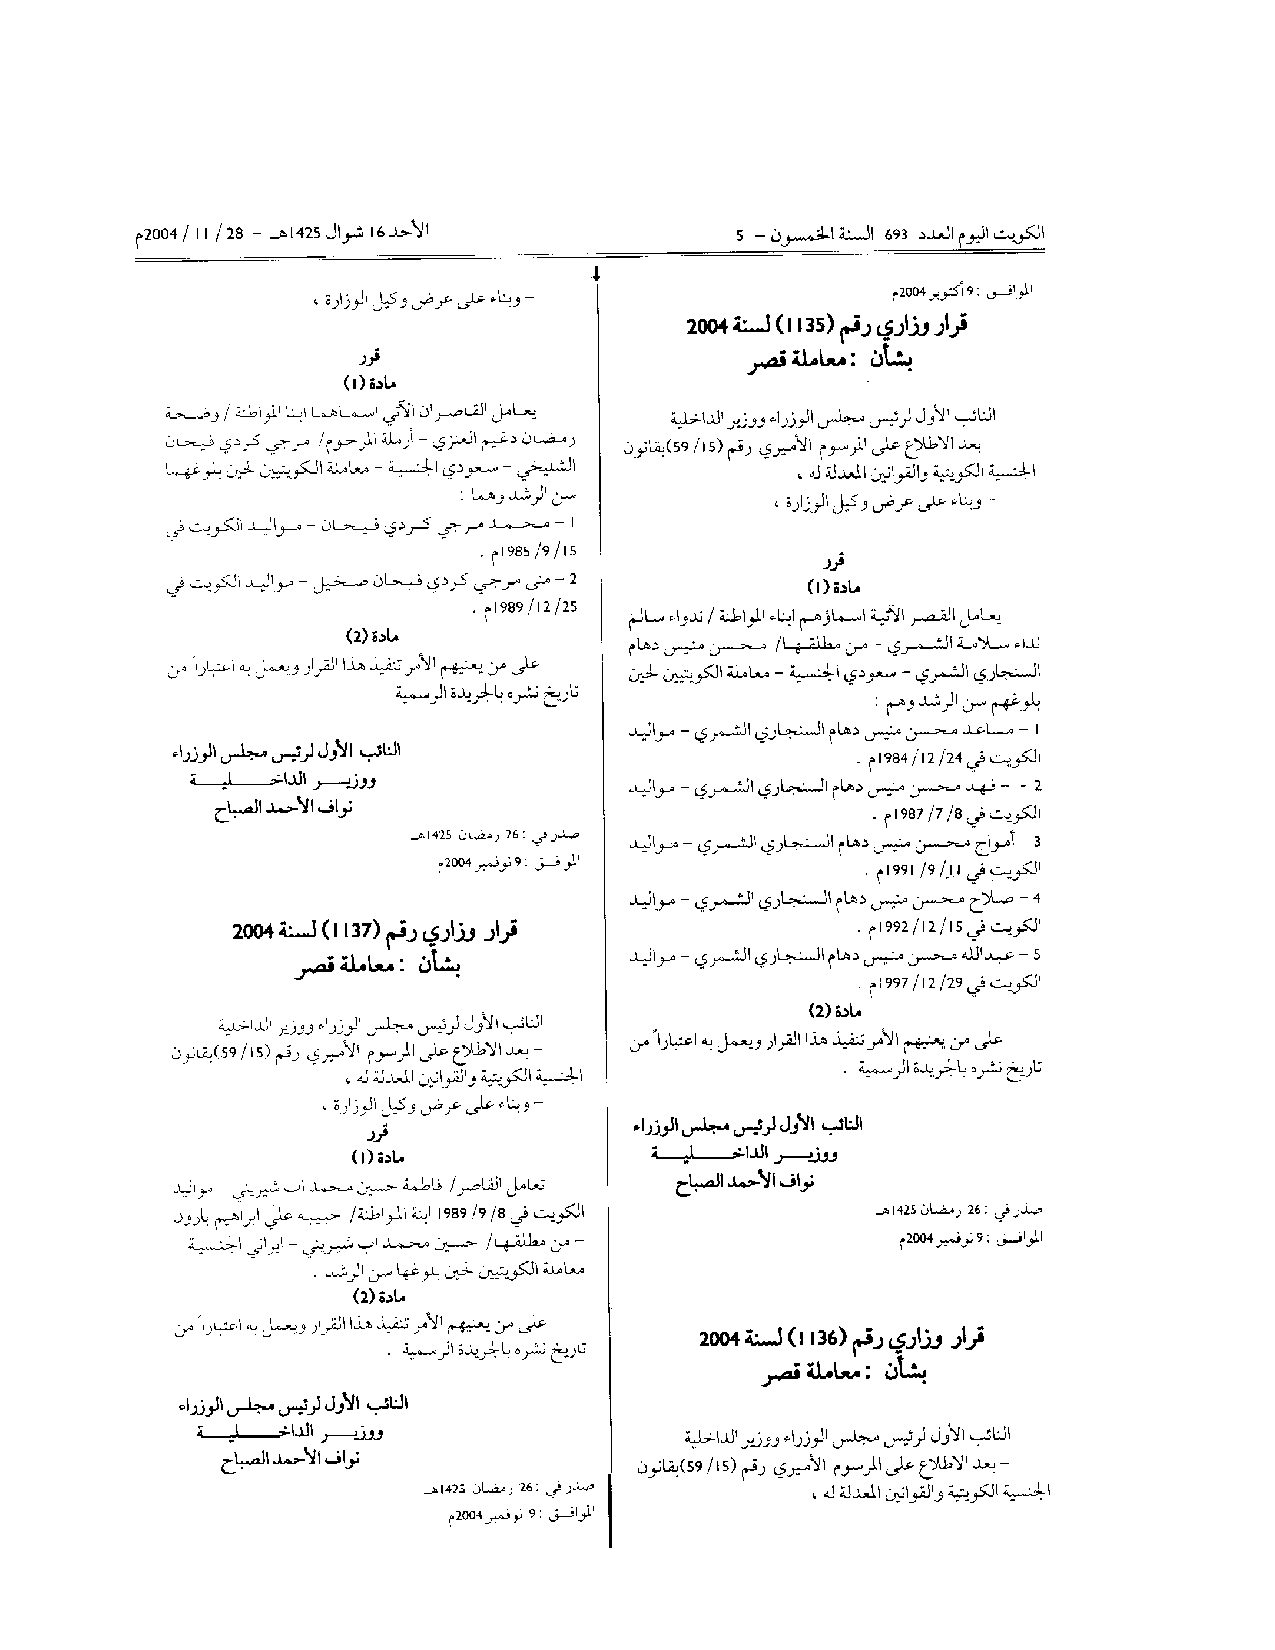 الكويت اليوم العدد 693 السنة الخمسون – 5
الأحد 16 شوال 1425هـ – 28 / 11 / 2004م
الموافـق : 9 أكتوبر 2004م
قرار وزاري رقم (1135) لسنة 2004
بشأن : معاملة قصر
النائب الأول لرئيس مجلس الوزراء ووزير الداخلية
بعد الاطلاع على المرسوم الأميري رقم (59/15) بقانون
الجنسية الكويتية والقوانين المعدلة له ،
- وبناء على عرض وكيل الوزارة ،
قرر
مادة (1)
يعامل القصر الآتية اسماؤهم ابناء المواطنة / نداء سالم
نداء سلامة الشمري - من مطلقها/ محسن منيس دهام
السنجاري الشمري - سعودي الجنسية - معاملة الكويتيين لحين
بلوغهم سن الرشد وهم :
1 - مساعد محسن منيس دهام السنجاري الشمري - مواليد
الكويت في 24/ 12/ 1984م .
2 - - فهد محسن منيس دهام السنجاري الشمري - مواليد
الكويت في 8/ 7/ 1987م .
3 أمواج محسن منيس دهام السنجاري الشمري - مواليد
الكويت في 11/ 9/ 1991م .
4 - صلاح محسن منيس دهام السنجاري الشمري - مواليد
الكويت في 15/ 12/ 1992م .
5 - عبدالله محسن منيس دهام السنجاري الشمري - مواليد
الكويت في 29/ 12/ 1997م .
مادة (2)
على من يعنيهم الأمر تنفيذ هذا القرار ويعمل به اعتباراً من
تاريخ نشره بالجريدة الرسمية .
النائب الأول لرئيس مجلس الوزراء
ووزيـــر الداخـــليـــة
نواف الأحمد الصباح
صدر في : 26 رمضان 1425هـ
الموافـق : 9 نوفمبر 2004م
قرار وزاري رقم (1136) لسنة 2004
بشأن : معاملة قصر
النائب الأول لرئيس مجلس الوزراء ووزير الداخلية
- بعد الاطلاع على المرسوم الأميري رقم (59/15) بقانون
الجنسية الكويتية والقوانين المعدلة له ،
- وبناء على عرض وكيل الوزارة ،
قرر
مادة (1)
يعامل القاصران الآتي اسماهما ابنا المواطنة / وضحة
رمضان دغيم العنزي - أرملة المرحوم/ مرجي كردي فيحان
الشليخي - سعودي الجنسية - معاملة الكويتيين لحين بلوغهما
سن الرشد وهما :
1 - محمد مرجي كردي فيحان - مواليد الكويت في
15/ 9/ 1985م .
2 - منى مرجي كردي فيحان صخيل - مواليد الكويت في
25/ 12/ 1989م .
مادة (2)
على من يعنيهم الأمر تنفيذ هذا القرار ويعمل به اعتباراً من
تاريخ نشره بالجريدة الرسمية
النائب الأول لرئيس مجلس الوزراء
ووزيـــر الداخـــليـــة
نواف الأحمد الصباح
صدر في : 26 رمضان 1425هـ
الموافـق : 9 نوفمبر 2004م
قرار وزاري رقم (1137) لسنة 2004
بشأن : معاملة قصر
النائب الأول لرئيس مجلس الوزراء ووزير الداخلية
- بعد الاطلاع على المرسوم الأميري رقم (59/15) بقانون
الجنسية الكويتية والقوانين المعدلة له ،
- وبناء على عرض وكيل الوزارة ،
قرر
مادة (1)
تعامل القاصر/ فاطمة حسين محمد اب شيريني مواليد
الكويت في 8/ 9/ 1989 ابنة المواطنة/ حبيبه علي ابراهيم بارود
- من مطلقها/ حسين محمد اب شيريني - ايراني الجنسية
معاملة الكويتيين لحين بلوغها سن الرشد .
مادة (2)
على من يعنيهم الأمر تنفيذ هذا القرار ويعمل به اعتباراً من
تاريخ نشره بالجريدة الرسمية .
النائب الأول لرئيس مجلس الوزراء
ووزيـــر الداخـــليـــة
نواف الأحمد الصباح
صدر في : 26 رمضان 1425هـ
الموافـق : 9 نوفمبر 2004م